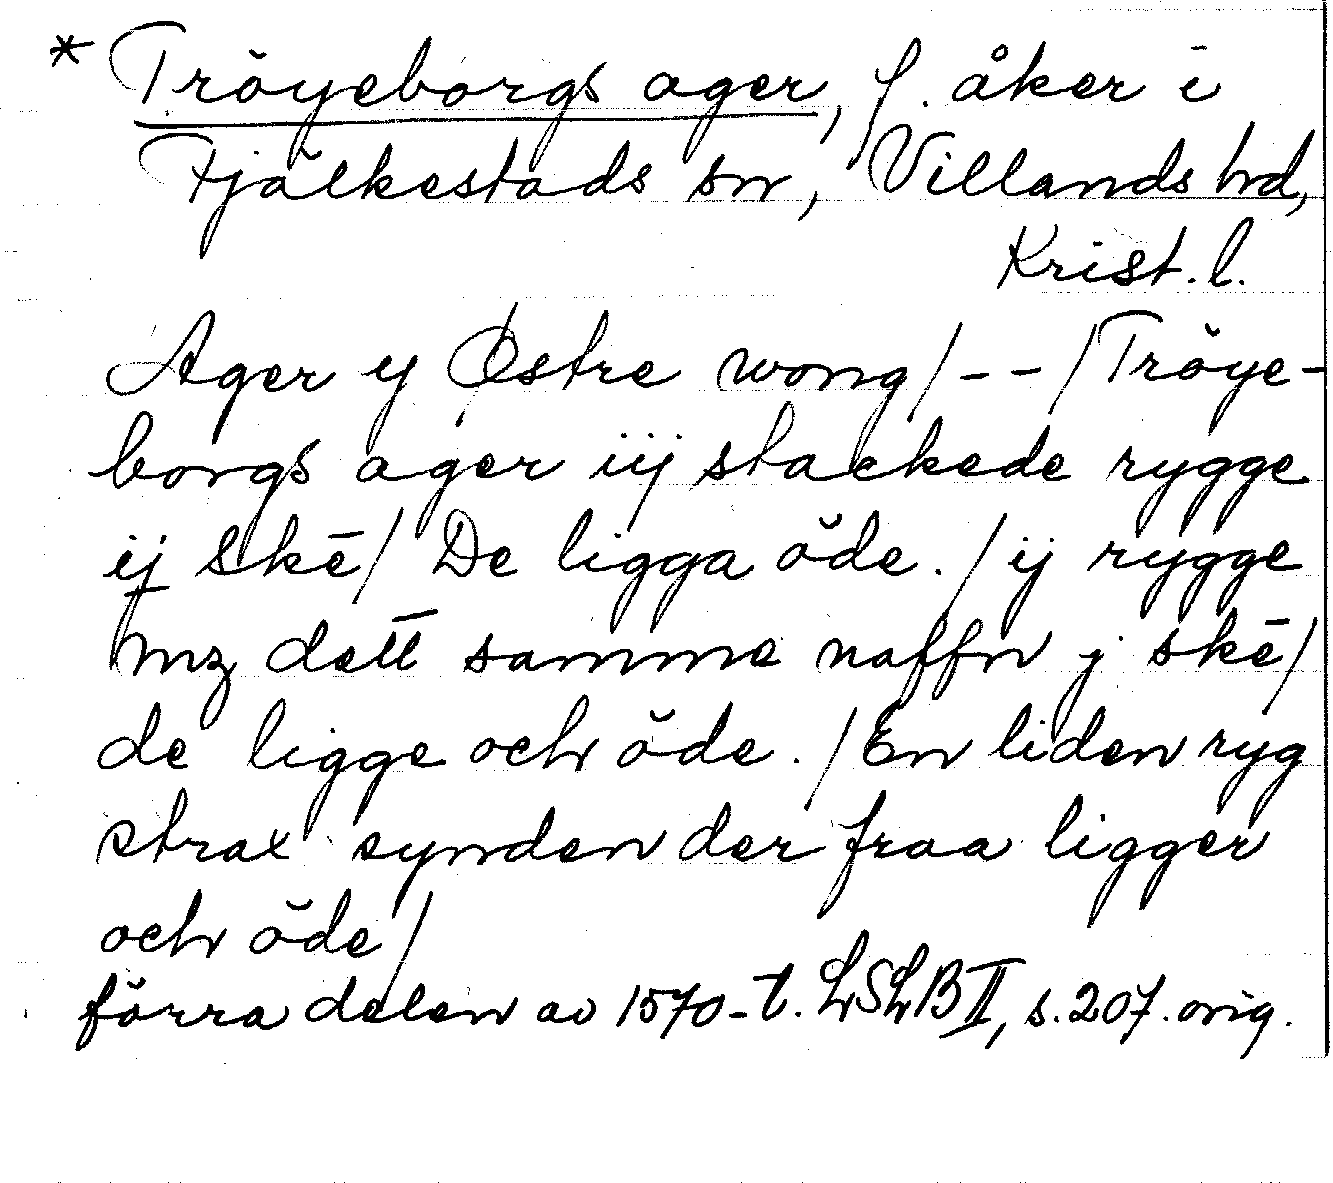 * Trŏyeborgs ager, f. åker i
Fjälkestads sn, Villands hrd,
Krist. l.
Ager y Østre wong/--/Trŏye-
borgs ager iij stackede rygge
ij skē/ De ligga ŏde./ij rygge
mz dett̄ samme naffn j skē/
de ligge och ŏde./En liden ryg
strax synden der fraa ligger
och ŏde/
förra delen av 1570-t. LSLB II, s. 207. orig.